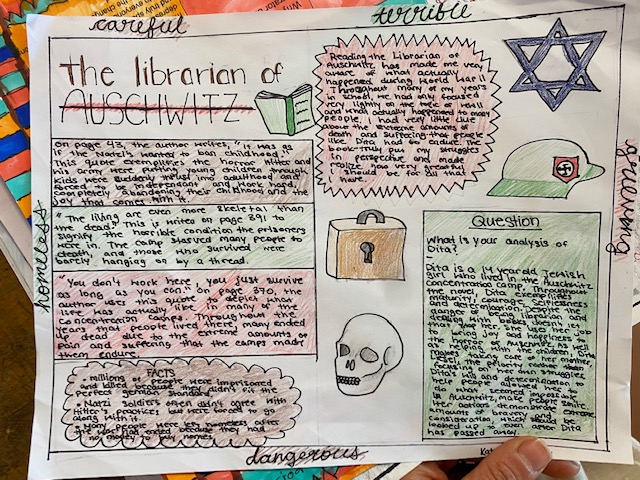 careful
terrible
The librarian of
AUSCHWITZ
On page 43, the author writes, "It was as
if the Nazis wanted to ban childhood."
This quote exemplifies the horror Hitler and
his army were putting young children through
kids were suddenly thrust into adulthood and
forced to be independant and work hard,
completely abandoning their childhood and the
joy that comes with it.
"The living are even more skeletal than
the dead." This is written on page 391 to
signify the horrible condition the prisoners
were in. The camp starved many people to
death, and those who survived were
barely hanging on by a thread.
"You don't work here, you just survive
as long as you can." on page 370, the
author uses this quote to depict what
life was actually like in many of the
concentration camps. Throughout the
years that people lived there, many ended
up dead due to the extreme amounts of
pain and suffering that the camps made
them endure.
FACTS
• millions of people were imprisoned
and killed because they didn't fit the
perfect german standard.
• Natzi soldiers often didn't agree with
Hitler's practices, but were forced to go
along with it
• Many people were left homeless after
the war had ended because they had
no money to buy homes
Reading the Librarian of
Auschwitz has made me very
aware of what actually
happened during World War II
Throughout many of my years
in school, we had only focused
very lightly on the topic of WWII
and what actually happened to many
people. I had very little clue
about the extreme amounts of
death and suffering that people
like Dita had to endure. The
book truly put my struggles
in perspective and made me
realize how very grateful
I should be for all that
I have.
Question
What is your analysis of
Dita?
Dita is a 14 year old Jewish
girl who lived in the Auschwitz
concentration camp. Throughout
the novel, Dita exemplifies
maturity, courage, selflessness
and determination. Despite the
danger of being the librarian and
leading the kids, she doesn't let
that stop her. She sees it her job
to bring joy and happiness to
the horror of Auschwitz, as well
as taking care of her mother,
focusing on
help people
what seemed impossible
in Auschwitz, make people smile.
Her actions demonstrate extreme
amounts of bravery and
consideration which should be
looked up to even after Dita
has passed away.
homeless
grieving
dangerous
Kat